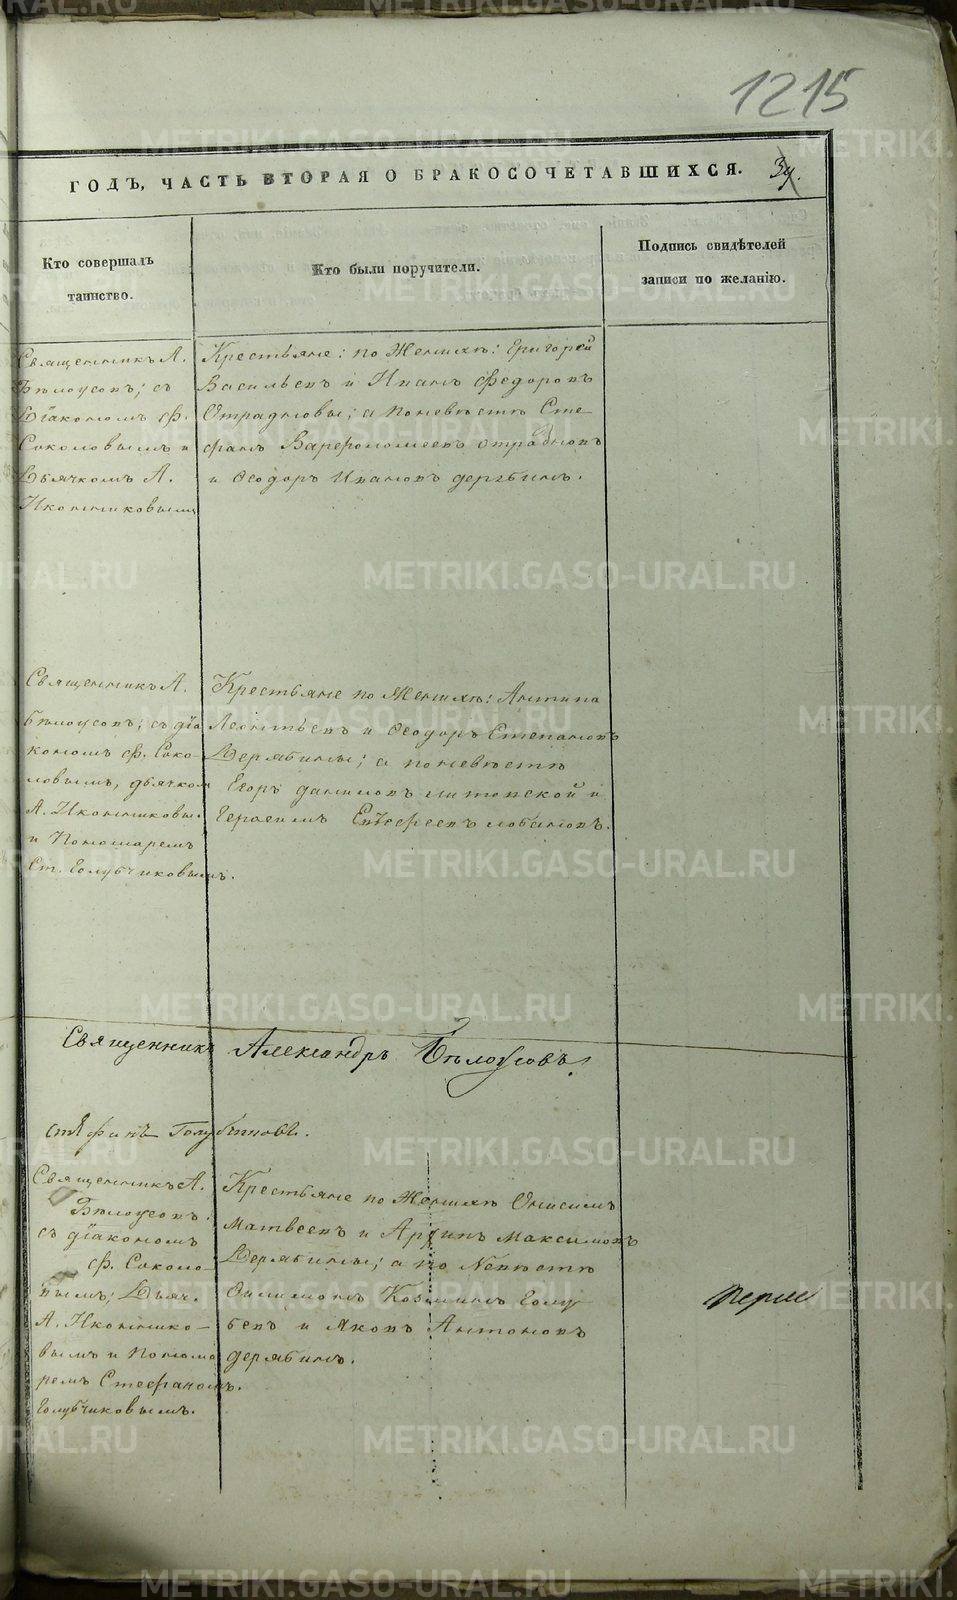 1215
ГОДЪ, ЧАСТЬ ВТОРАЯ О БРАКОСОЧЕТАВШИХСЯ.
Кто совершалъ
таинство.
Кто были поручители.
Подпись свидѣтелей
записи по желанію.
Священникъ А.
Бѣлоусовъ; съ
Діакономъ Ф.
Соколовымъ и
Дьячкомъ А.
Иконниковымъ
Крестьяне: по Женихѣ: Григорей
Васильевъ и Иванъ Федоровъ
Отрадновы; а поневѣстѣ Сте-
фанъ Варфоломеевъ отрадновъ
и Ѳеодоръ Ивановъ дерябинъ.
Священникъ А.
Бѣлоусовъ; съ діа
кономъ Ф. Соко-
ловымъ, дьячком
А. Иконниковы.
и Пономаремъ
Ст. Голубчиковымъ.
Крестьяне по Женихѣ: Антипа
Леонтьевъ и Ѳеодоръ Степановъ
Дерябины; а поневѣстѣ
Егоръ даниловъ литовской и
Герасимъ Евсеевъ лобановъ.
Священникъ Александръ Бѣлоусовъ.
Священникъ А.
Бѣлоусовъ
съ діакономъ
Ф. Соколо-
вымъ; Дьяч.
А. Иконнико-
вымъ и Пономо
ремъ Стефаномъ.
Голубчиковымъ.
Крестьяне по Женихѣ Онисимъ
Матвеевъ и Максимовъ
Дерябины; а по Невѣстѣ
Филимонъ Козминъ Голу
бевъ и Яковъ Антоновъ
дерябинъ.
METRIKI.GASO-URAL.RU